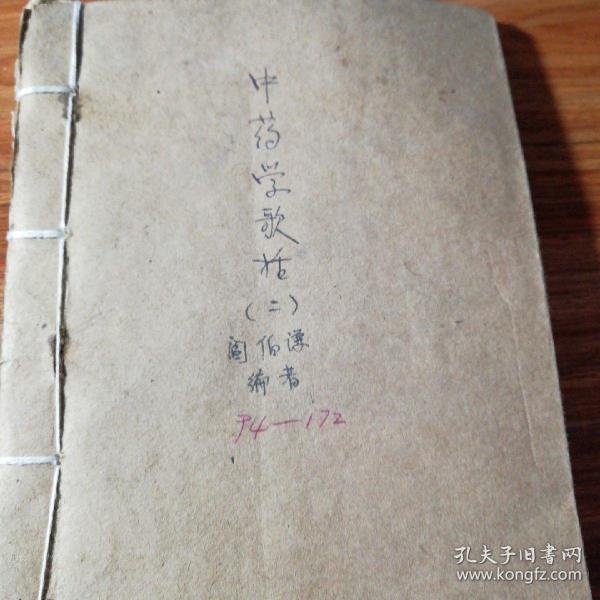 中药学歌括
(二)
阎伯谦
编者
34—172
孔夫子旧书网
www.kongfz.com